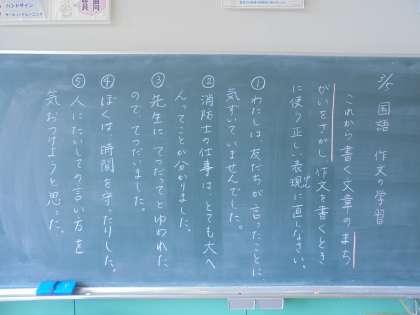 ハンドサイン
質問
3/5 国語 作文の学習
これから書く文章のまち
がいをさがし作文を書くとき
に使う正しい表現に直しなさい。
げん
①わたしは友だちが言ったことに
気ずいていませんでした。
②消防士の仕事はとても大へ
んってことが分かりました。
③先生にてつだってとゆわれた
ので、てつだいました。
④ぼくは、時間を守たりした。
⑤人にたいしての言い方を
気おつけようと思った。